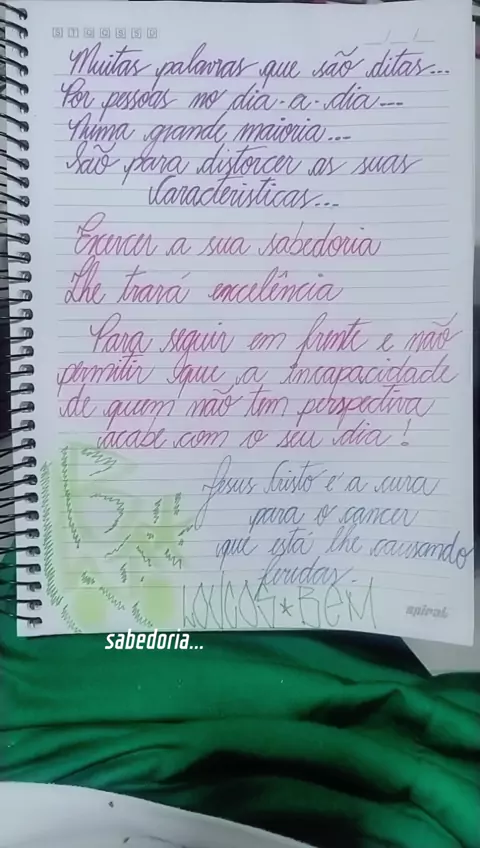 S T Q Q S S D
__/__/__
Muitas palavras que são ditas...
Por pessoas no dia-a-dia...
Numa grande maioria...
São para distorcer as suas
Características...
Exercer a sua sabedoria
Lhe trará excelência
Para seguir em frente e não
permitir que a incapacidade
de quem não tem perspectiva
acabe com o seu dia!
Jesus Cristo é a cura
para o cancer
que está lhe causando
feridas.
LOUCOS*BEM
spiral
sabedoria...